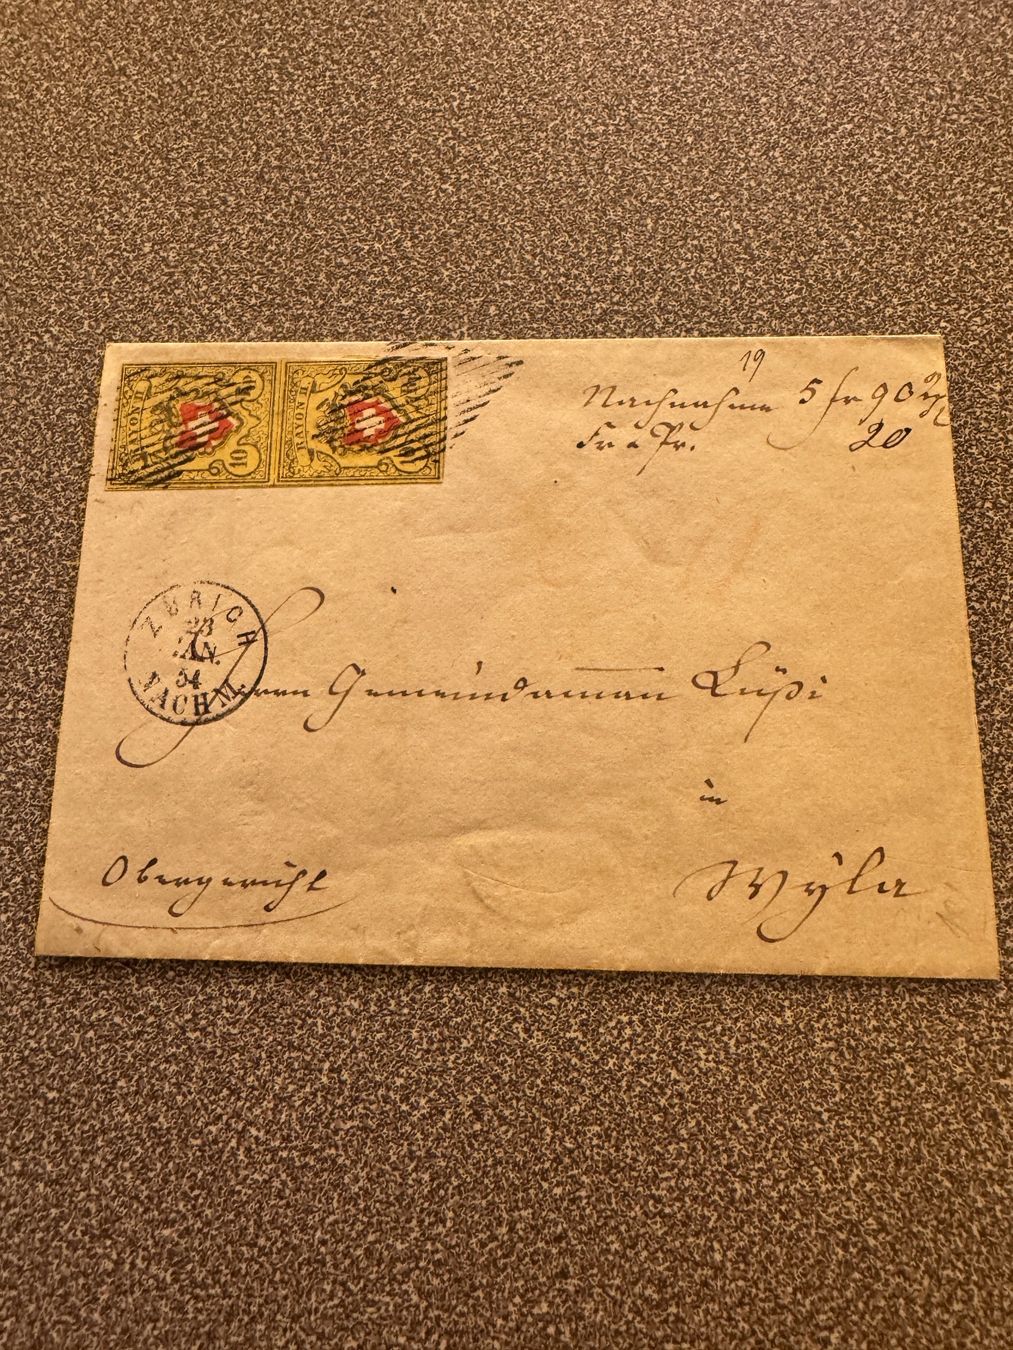 RAYON II
10
RAYON II
10
19
Nachnahme 5 fr 90
Fr. Pr. 20
ZÜRICH
23
JAN.
54
NACHM.
Herrn Gemeindamann Lüßi
in
Wÿla
Obergericht